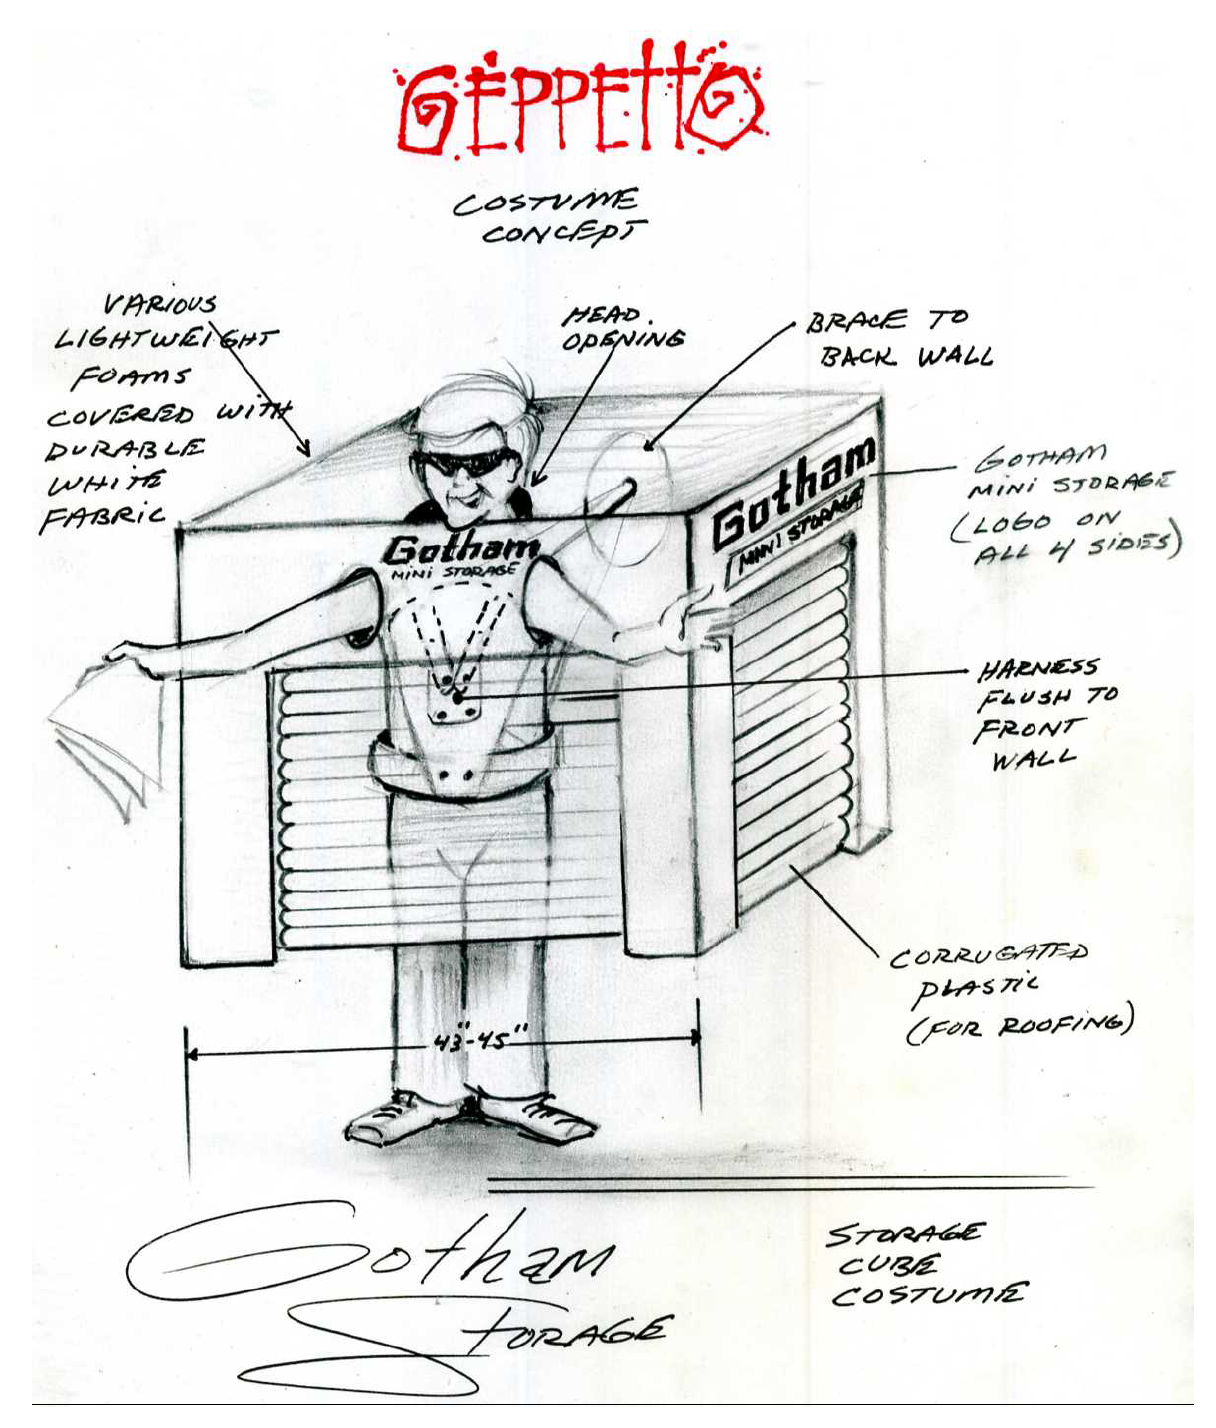 GEPPETTO
COSTUME
CONCEPT
VARIOUS
LIGHTWEIGHT
FOAMS
COVERED WITH
DURABLE
WHITE
FABRIC
HEAD
OPENING
BRACE TO
BACK WALL
Gotham
MINI STORAGE
Gotham
MINI STORAGE
GOTHAM
MINI STORAGE
(LOGO ON
ALL 4 SIDES)
HARNESS
FLUSH TO
FRONT
WALL
CORRUGATED
PLASTIC
(FOR ROOFING)
43"-45"
Gotham
STORAGE
STORAGE
CUBE
COSTUME